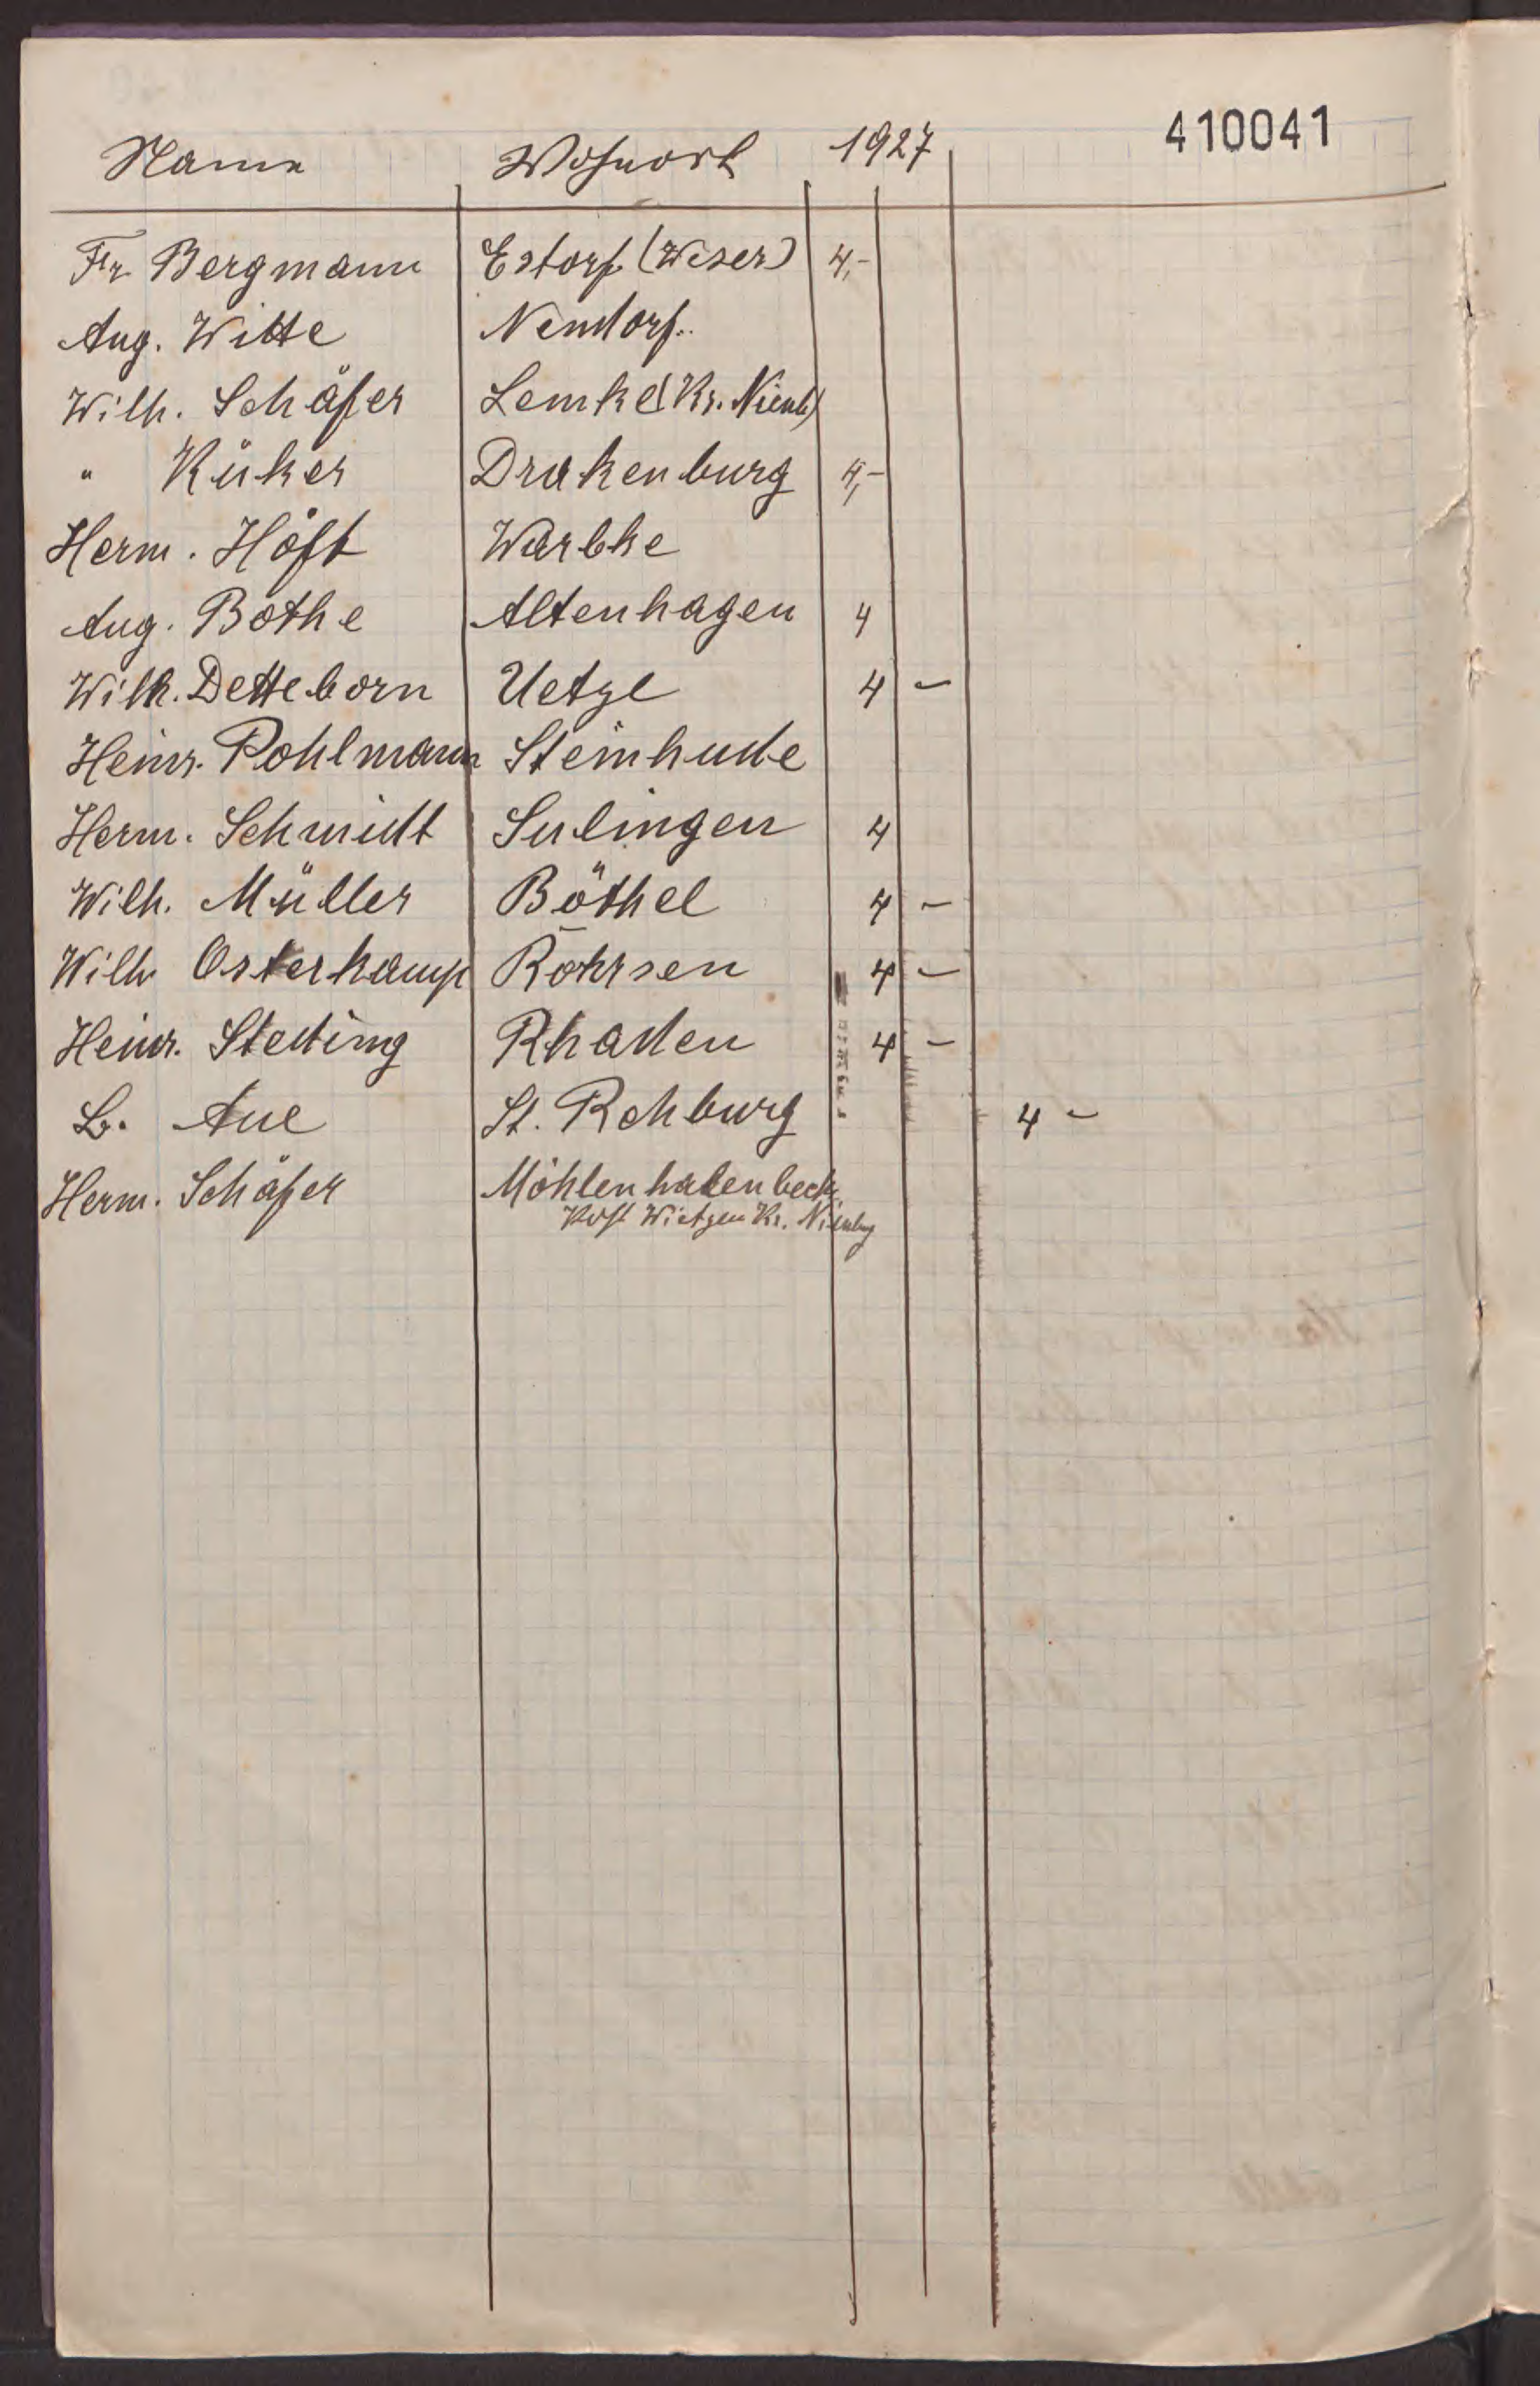 410041
Name Wohnort 1927
Fr. Bergmann Estorf (Weser) 4,-
Aug. Witte Nendorf.
Wilh. Schäfer Lemke (Kr. Nienb)
" Küker Drakenburg 4,-
Herm. Höft Warbke
Aug. Bothe Altenhagen 4
Wilh. Detteborn Uetze 4 -
Heinr. Pohlmann Steinhude
Herm. Schmidt Sulingen 4
Wilh. Müller Böthel 4 -
Wilh Osterkamp Rohrsen 4 -
Heinr. Steding Rhaden 4 -
Lr. Aue St. Rehburg 4 -
Herm. Schäfer Möhlenhalenbeck
Post Wietzen Kr. Nienburg